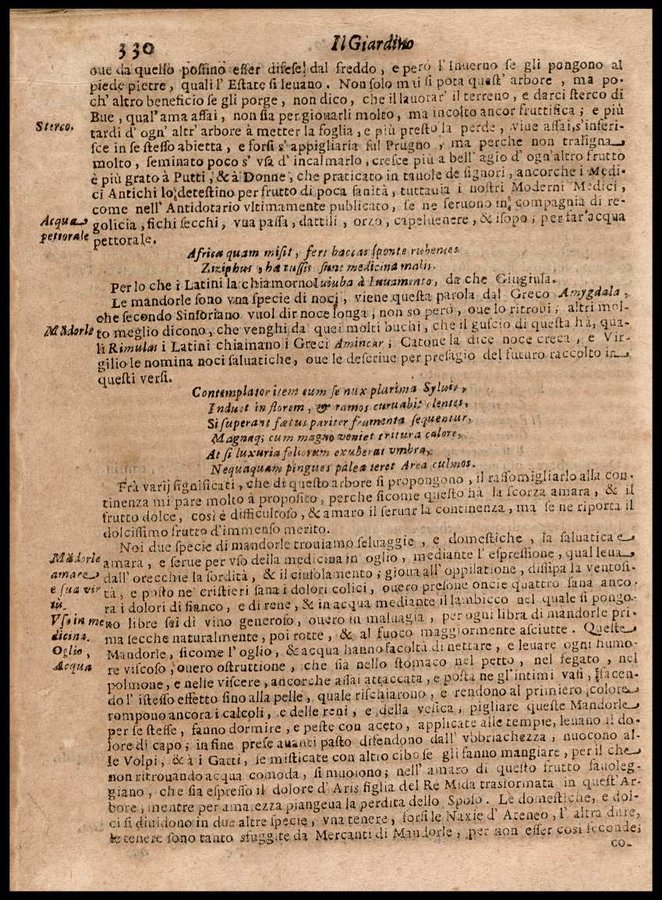 330
Il Giardino
oue da quello possino esser difese dal freddo, e però l'Inuerno se gli pongono al
piede pietre, quali l'Estate si leuano. Non solo mai si pota quest'arbore, ma po-
ch'altro beneficio se gli porge, non dico, che il lauorar' il terreno, e darci sterco di
Sterco.
Bue, qual'ama assai, non sia per giouarli molto, ma incolto ancor fruttifica; e più
tardi d'ogn'altr'arbore à metter la foglia, e più presto la perde, viue assai, s'inseri-
sce in se stesso abietta, e forsi s'appigliaria sul Prugno, ma perche non traligna
molto, seminato poco s'vsa d'incalmarlo, cresce più a bell'agio d'ogn'altro frutto
è più grato à Putti, & à Donne, che praticato in tauole de signori, ancorche i Medi-
ci Antichi lo detestino per frutto di poca sanità, tuttauia i nostri Moderni Medici,
come nell'Antidotario vltimamente publicato, se ne seruono in compagnia di re-
Acqua pettorale
golicia, fichi secchi, vua passa, dattili, orzo, capeluenere, & isopo; per far'acqua
pettorale.
Africa quam misit, fert baccas sponte rubentes
Ziziphus, hæ tussis sunt medicina malis.
Per lo che i Latini la chiamorno Iuiuba à Iuuamento, da che Giugiula.
Le mandorle sono vna specie di noci, viene questa parola dal Greco Amygdala,
che secondo Sinforiano vuol dir noce longa, non so però, oue lo ritroui; altri mol-
Mãdorle
to meglio dicono, che venghi da quei molti buchi, che il guscio di questa hà, qua-
li Rimulas i Latini chiamano i Greci Amincar; Catone la dice noce greca, e Vir-
gilio le nomina noci saluatiche, oue le descriue per presagio del futuro raccolto in
questi versi.
Contemplator item cum se nux plurima Syluis,
Induet in florem, & ramos curuabit olentes,
Si superant fætus pariter frumenta sequentur,
Magnaq; cum magno veniet tritura calore,
At si luxuria foliorum exuberat vmbra,
Nequaquam pingues palea teret Area culmos.
Frà varij significati, che di questo arbore si propongono, il rassomigliarlo alla con-
tinenza mi pare molto à proposito, perche sicome questo hà la scorza amara, & il
frutto dolce, così è difficultoso, & amaro il seruar la continenza, ma se ne riporta il
dolcissimo frutto d'immenso merito.
Noi due specie di mandorle trouiamo seluaggie, e domestiche, la saluatica è
Mãdorle amare e sua virtù.
amara, e serue per vso della medicina in oglio, mediante l'espressione, qual leua
dall'orecchie la sordità, & il ciufolamento; gioua all'oppilatione, dissipa la ventosi-
tà, e posto ne' cristieri sana i dolori colici, ouero presone oncie quattro sana anco-
ra i dolori di fianco, e di rene, & in acqua mediante il lambicco nel quale si pongo-
Vso in medicina.
no libre sei di vino generoso, ouero in maluagia, per ogni libra di mandorle pri-
ma secche naturalmente, poi rotte, & al fuoco maggiormente asciutte. Queste
Oglio, Acqua
Mandorle, sicome l'oglio, & acqua hanno facoltà di nettare, e leuare ogni humo-
re viscoso, ouero ostruttione, che sia nello stomaco nel petto, nel fegato, nel
polmone, e nelle viscere, ancorche assai attaccata, e posta ne gl'intimi vasi, facen-
do l'istesso effetto sino alla pelle, quale rischiarono, e rendono al primiero colore
rompono ancora i calcoli, e delle reni, e della vesica, pigliare queste Mandorle
per se stesse, fanno dormire, e peste con aceto, applicate alle tempie, leuano il do-
lore di capo; in fine prese auanti pasto difendono dall'vbbriachezza; nuocono al-
le Volpi, & à i Gatti, se misticate con altro cibo se gli fanno mangiare, per il che
non ritrouando acqua comoda, si muoiono; nell'amaro di questo frutto fauoleg-
giano, che sia espresso il dolore d'Aris figlia del Rè Mida trasformata in quest'Ar-
bore, mentre per amarezza piangeua la perdita dello Sposo. Le domestiche, e dol-
ci si diuidono in due altre specie, vna tenere, forsi le Naxie d'Ateneo, l'altra dure,
le tenere sono tanto sfuggite da Mercanti di Mandorle, per non esser così feconde;
co-